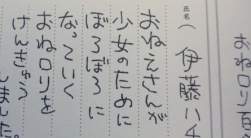 おねロリを
氏名 伊藤ハチ
おねえさんが
少女のために
ぼろぼろに
なっていく
おねロリを
けんきゅう
しました。